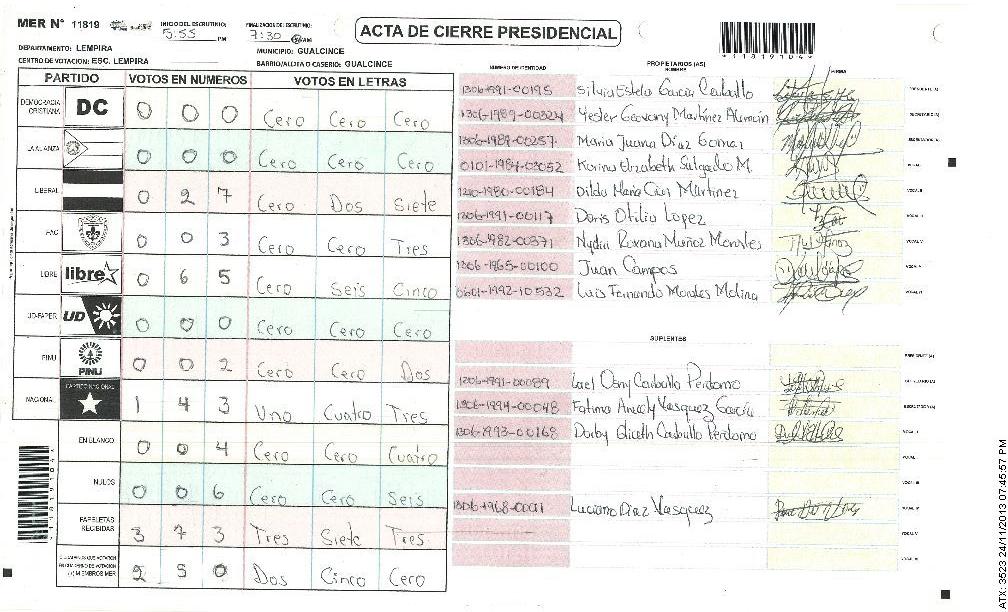 MER N° 11819
INICIO DEL ESCRUTINIO: 5:55 PM
FINALIZACION DEL ESCRUTINIO: 7:30
ACTA DE CIERRE PRESIDENCIAL
*11819104*
DEPARTAMENTO: LEMPIRA
MUNICIPIO: GUALCINCE
CENTRO DE VOTACION: ESC. LEMPIRA
BARRIO/ALDEA O CASERIO: GUALCINCE
PARTIDO VOTOS EN NUMEROS VOTOS EN LETRAS
DEMOCRACIA CRISTIANA DC 0 0 0 Cero Cero Cero
LA ALIANZA 0 0 0 Cero Cero Cero
LIBERAL 0 2 7 Cero Dos Siete
FAC 0 0 3 Cero Cero Tres
LIBRE libre 0 6 5 Cero Seis Cinco
UD-FAPER UD 0 0 0 Cero Cero Cero
PINU PINU 0 0 2 Cero Cero Dos
NACIONAL PARTIDO NACIONAL 1 4 3 Uno Cuatro Tres
EN BLANCO 0 0 4 Cero Cero Cuatro
NULOS 0 0 6 Cero Cero Seis
PAPELETAS RECIBIDAS 3 7 3 Tres Siete Tres
CIUDADANOS QUE VOTARON EN CUADERNO DE VOTACION (+) MIEMBROS MER 2 5 0 Dos Cinco Cero
*11819104*
NUMERO DE IDENTIDAD PROPIETARIOS (AS) NOMBRE FIRMA
Silvia Estela García Carballo PRESIDENTE (A)
1306-1989-00324 Yester Geovany Martínez Alemán SECRETARIO (A)
1306-1989-00257 Maria Juana Díaz Gomez
0101-1984-03052 Karina Elizabeth Salgado M.
-1980-00184 Dilda Maria Cruz Martinez
1306-1991-00117 Doris Otilia Lopez
1306-1982-00371 Nydia Roxana Muñoz Morales
1306-1965-00100 Juan Campos
0601-1992-10532 Luis Fernando Morales Molina
SUPLENTES
PRESIDENTE (A)
1306-1991-00089 Lael Dany Carballo Perdomo
1306-1994-00048 Fatima Aracely Vasquez García
1306-1993-00168 Darby Gliceth Carballo Perdomo
Luciano Díaz Vasquez
ATX: 3523 24/11/2013 07:45:57 PM